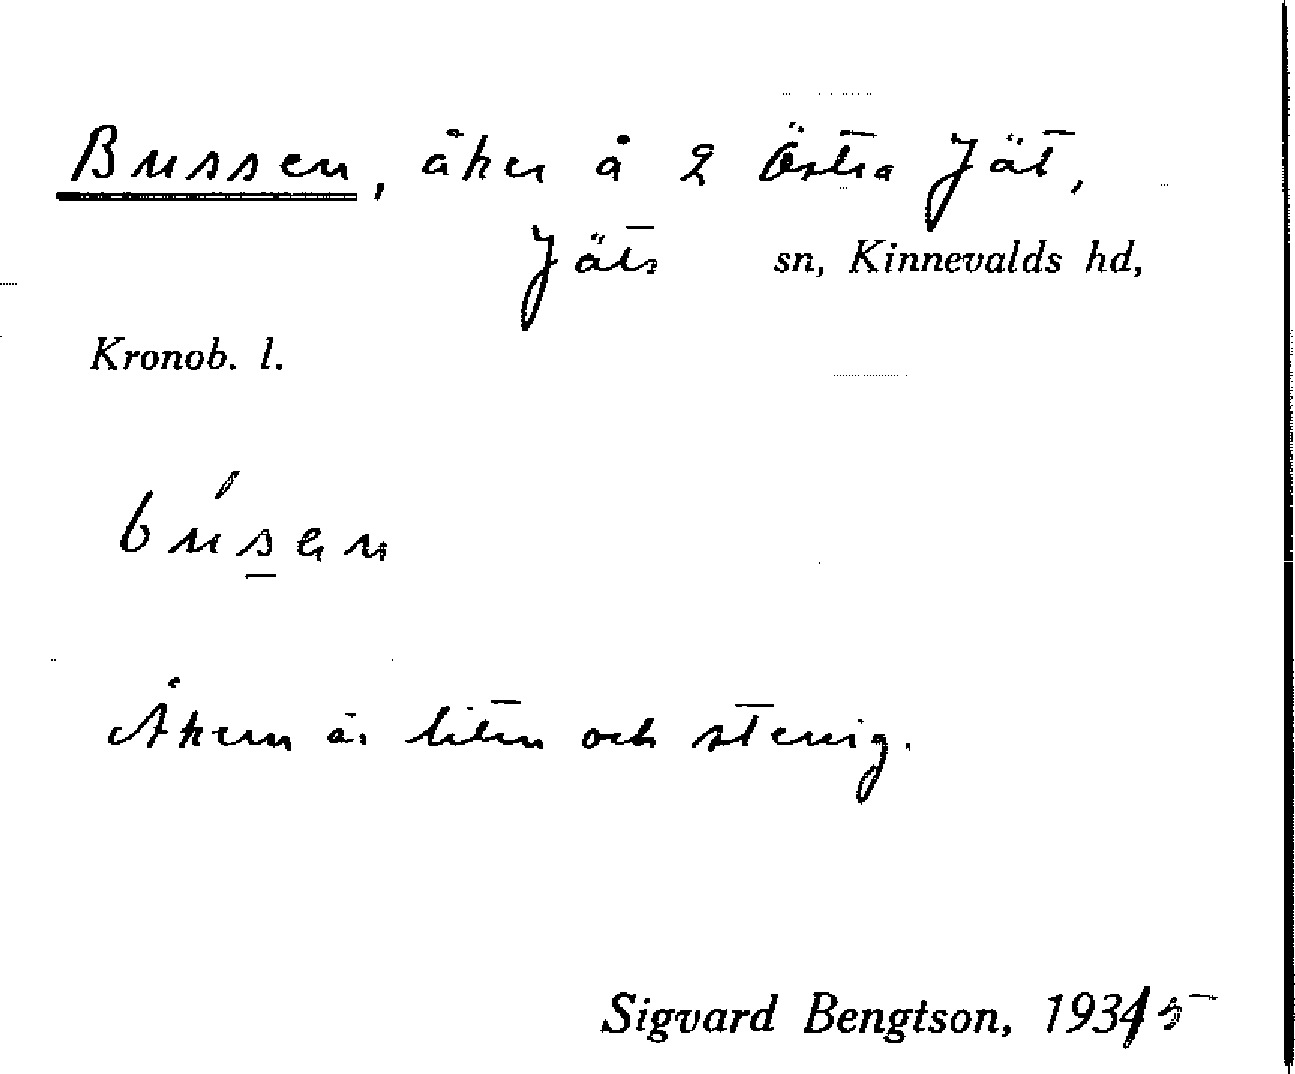 Bussen, åker å 2 Östra Jät,
Jäts sn, Kinnevalds hd,
Kronob. l.
bús̲ən
Åkern är liten och stenig.
Sigvard Bengtson, 1935